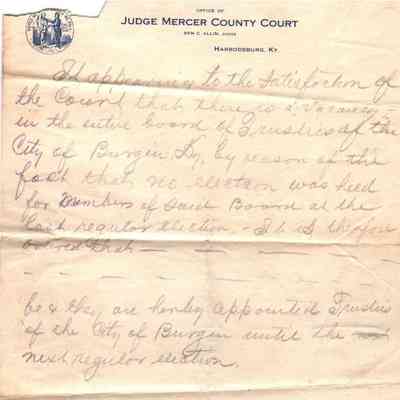 OFFICE OF
JUDGE MERCER COUNTY COURT
BEN C. ALLIN, JUDGE
HARRODSBURG, KY
It appearing to the Satisfaction of
the Court that there is a Vacancy
in the entire board of Trustees of the
City of Burgin Ky, by reason of the
fact that no election was held
for Members of said Board at the
last regular election, - It is therefore
ordered that — — — —
be & they are hereby appointed Trustees
of the City of Burgin until the
next regular election.